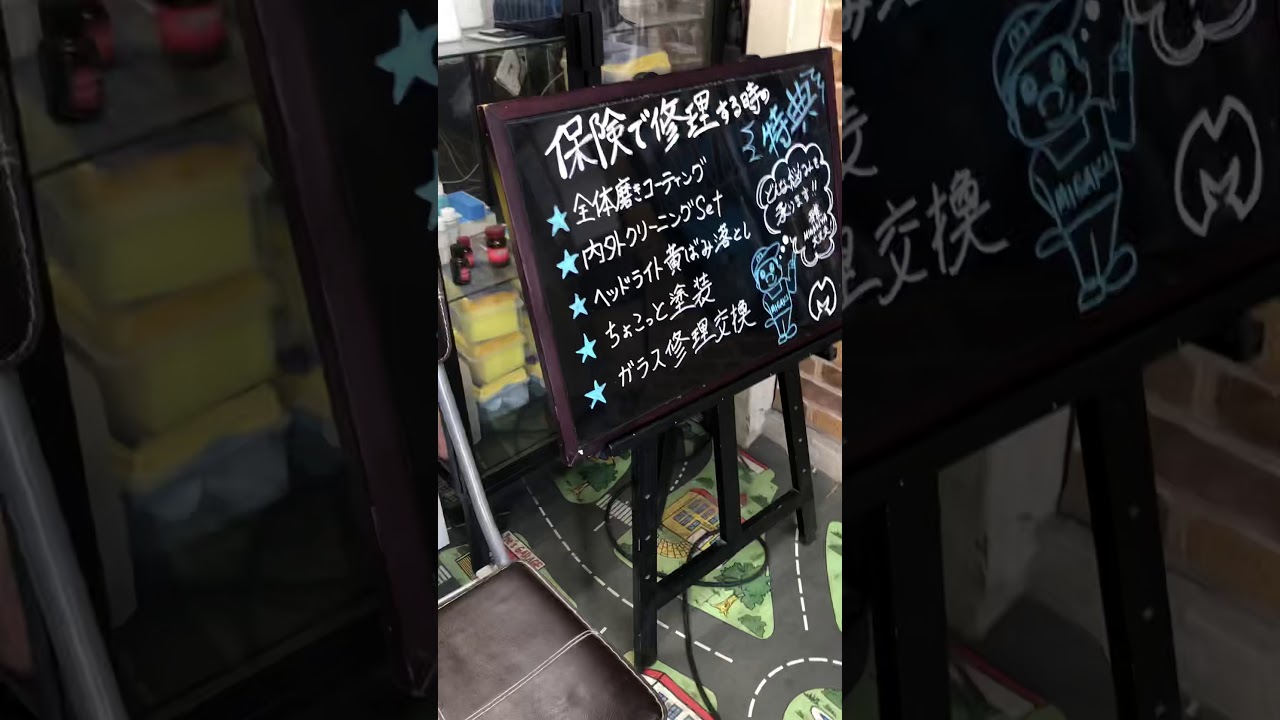 保険で修理する時の
特典
全体磨きコーティング
内外クリーニングSet
ヘッドライト黄ばみ落とし
ちょこっと塗装
ガラス修理交換
どんな悩みも
承ります!!
MIGAKU
M